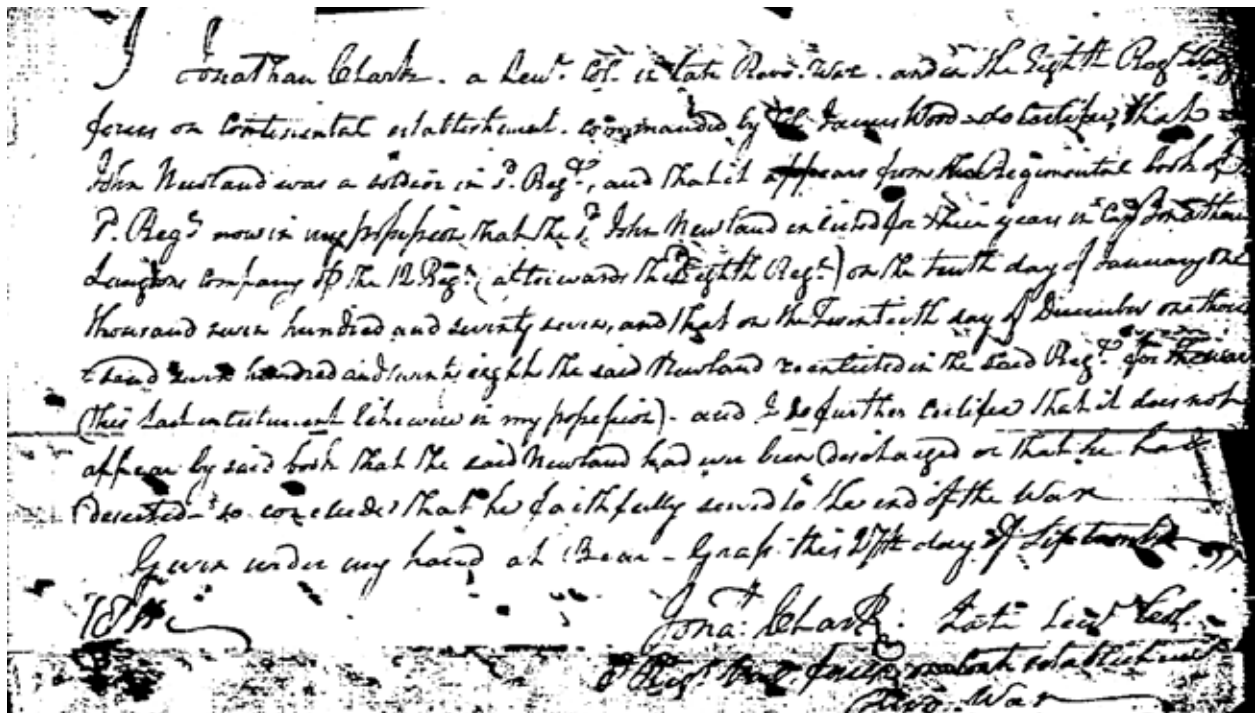 I Jonathan Clark. a Lieut. Col. in late Revo. War. and in the Eighth Regt. Virg
forces on Continental establishment. commanded by Col James Wood do certifie, that
John Newland was a soldier in sd. Regt., and that it appears from the Regimental book of
sd. Regt now in my possession that the sd. John Newland enlisted for three years in Capt Jonathan
Langdons company of the 12 Regt. (afterwards the Eighth Regt.) on the tenth day of January one
thousand seven hundred and seventy seven, and that on the Twentieth day of December one thou
sand seven hundred and seventy eight the said Newland reenlisted in the said Regt. for the war
(this last enlistment likewise in my possession). and I do further certifie that it does not
appear by said book that the said Newland had ever been discharged or that he had
deserted so concludes that he faithfully served to the end of the War
Given under my hand at Bear-Grass this 27th day of September
Jona. Clark. Late Lieut Col.
8 Regt. forces on Cont establishment
Revo. War